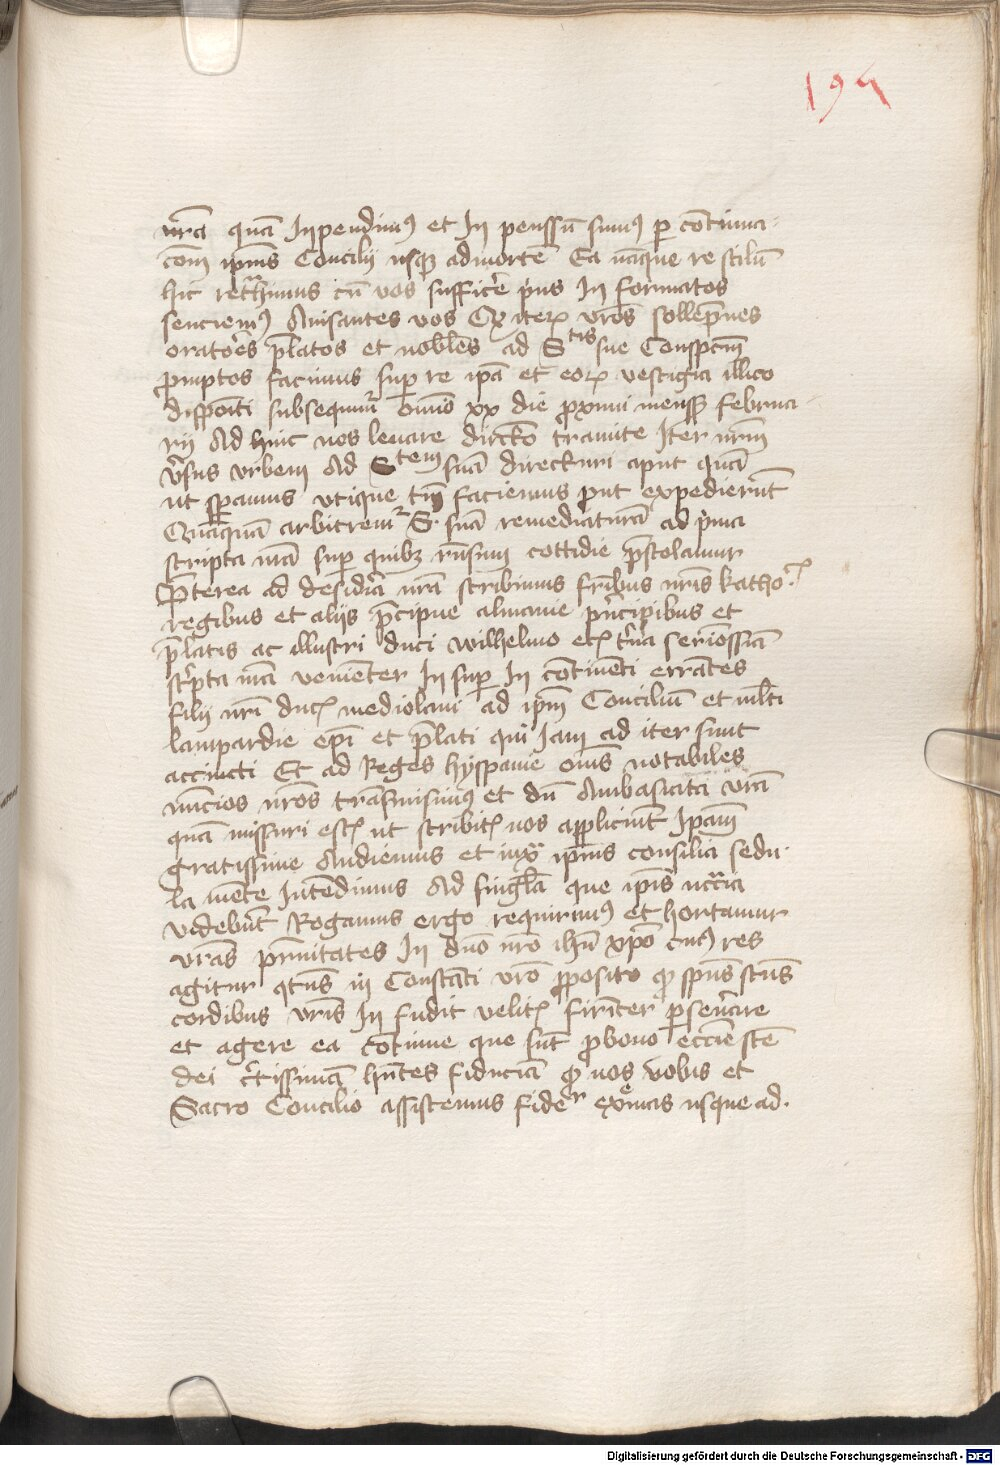 195
nr̄a quā Inpendim9 et In penssū sum9 p cōtinua-
cōm ipīus Concilij usq3 ad mortē Ea nāque re stilū
hic retͣhimus cū vos sufficēr p̄us In formatos
senciem9 Auisantes vos Qz iterꝝ vr̄os sollēpnes
oratōes p̄latos et nobīles ad Stis sue Conspcm̄
promptos facimus sup re ipā et eorꝝ vestigia illico
dispoīti subsequimur om̄io xx die proximi menss3 februa-
rij Ad hinc nos leuare dirckō tramite Iter nrm̄
v̄sus vrbem Ad Stem suā directuri aput quā
ut speramus vtique tm̄ faciemus put expedier̄nt
Quāquā arbitremur S. suā remediaturā ad p̄ma
scripta nr̄a sup quib3 rn̄sum cottidie p̄stolamur
P̄terea ad desid̄ia nr̄a scribimus frībus nr̄is katho.
regibus et alijs p̄cipue almanie pr̄ncipibus et
p̄latis ac illustri duci Wilhelmo etꝛ
scr̄pta nr̄a veniēter In sup In cōtinēti errātes
filij nr̄i ducꝭ mediolani ad ipm̄ Conciliū et mlt̄i
lampardie ep̄i et p̄lati qui Jam ad iter sunt
accincti Et ad Reges hyspanie om̄s notabiles
nūcios nr̄os trāsmisim9 et dū Ambasiata vr̄a
quā missuri estꝭ ut scribitꝭ nos applicūit Ipam̄
gratissime Audiemus et iuxͣ ipīus consilia sedu-
la mēte Intēdimus Ad singl̄a que ipīs nccͣia
videbūt Rogamus ergo requirim9 et hortamur
vr̄as pr̄nitates In dn̄o nr̄o ihū xp̄o cui9 res
agitur qtn̄s in Constāti vr̄o proposito qd sp̄us scūs
cordibus vr̄is In fudit velitꝭ firīter p seūare
et agere ea cōtinue que sūt pro bono eccīe scē
dei c̄tissimā hn̄tes fiduciā qd nos vobis et
Sacro Concilio assistemus fider usque ad.
Digitalisierung gefördert durch die Deutsche Forschungsgemeinschaft - DFG